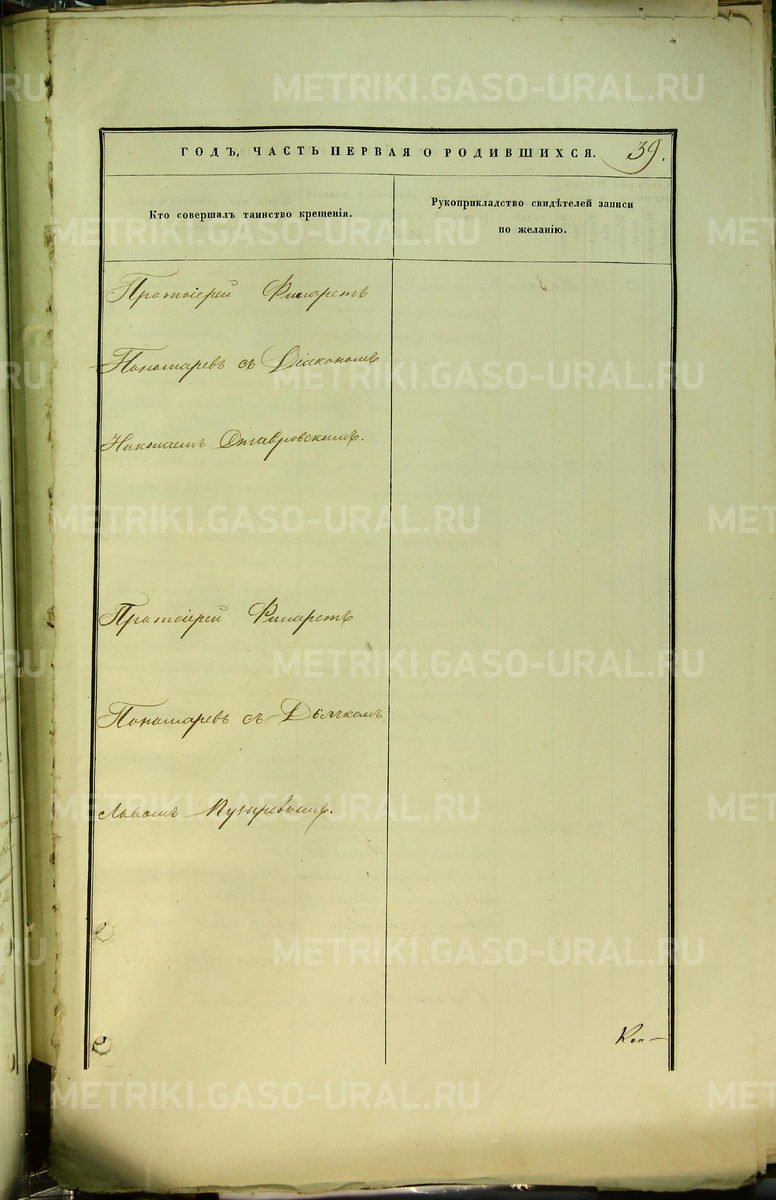 METRIKI.GASO-URAL.RU
ГОДЪ, ЧАСТЬ ПЕРВАЯ О РОДИВШИХСЯ. 39.
Кто совершалъ таинство крещенія.
Рукоприкладство свидѣтелей записи
по желанію.
Протоіерей Филаретъ
Пономаревъ съ Діакономъ
Николаемъ Ставровскимъ.
Протоіерей Филаретъ
Пономаревъ съ Дьячкомъ
Пузыревымъ.